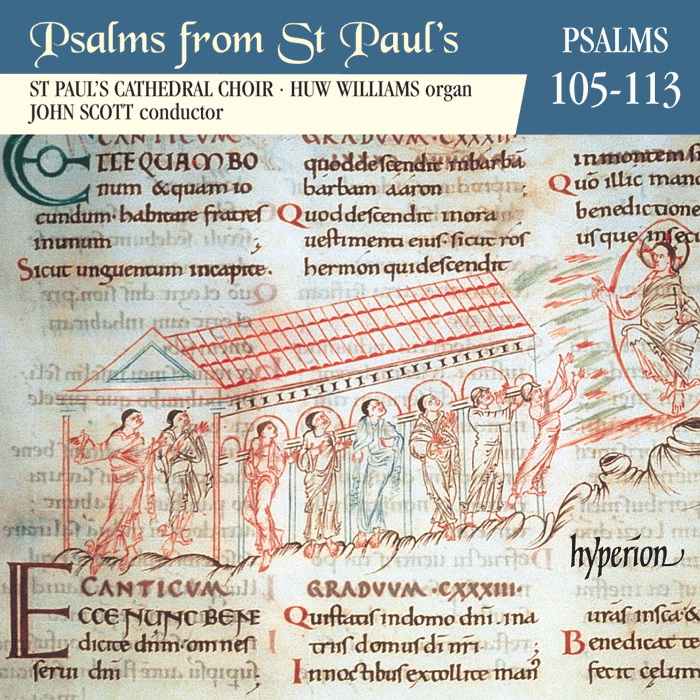 Psalms from St Paul's
ST PAUL'S CATHEDRAL CHOIR · HUW WILLIAMS organ
JOHN SCOTT conductor
PSALMS
105-113
CANTICUM
GRADUUM·CXXXII·
ECCE QUAM BO
num &quam io
cundum·habitare fratres
inunum
Sicut unguentum incapite·
quoddescendit inbarbā
barbam aaron
Quoddescendit inora
uestimenti eius·sicut ros
hermon quidescendit
inmontem
Quō illic man
benedictione
usque
hyperion
CANTICUM
GRADUUM·CXXXIII·
ECCE NUNC BENE
dicite dn̄m·omnes
serui dn̄i
Quistatis indomo dn̄i·ina
triis domus dī nr̄i
Innoctibus extollite man
Benedicat te
fecit celum